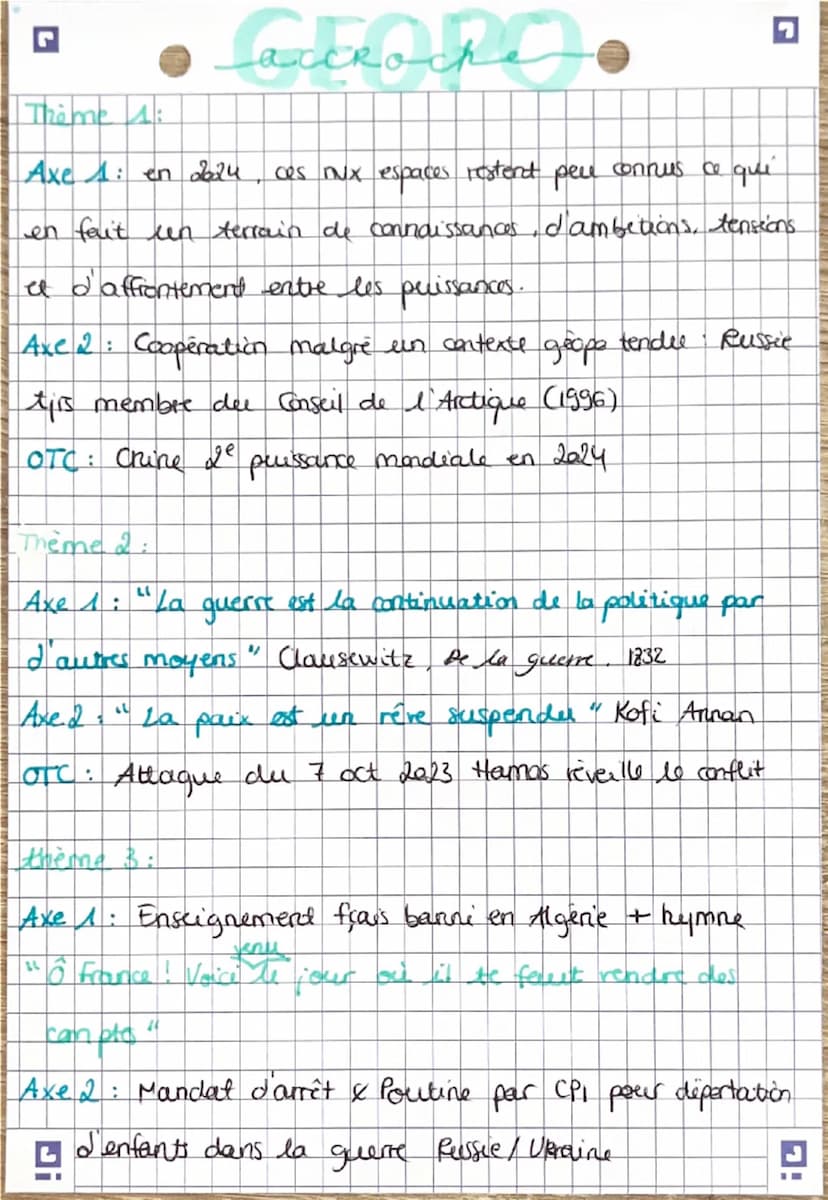 GEOPO
accroche
Thème 1:
Axe 1: en 2024, ces nvx espaces restent peu connus ce qui
en fait un terrain de connaissances, d'ambitions, tensions
et d'affrontement entre les puissances.
Axe 2: Coopération malgré un contexte géopo tendu : Russie
tjrs membre du Conseil de l'Arctique (1996)
OTC: Chine 2e puissance mondiale en 2024
Thème 2:
Axe 1: "La guerre est la continuation de la politique par
d'autres moyens" Clausewitz, De la guerre. 1832
Axe 2: "La paix est un rêve suspendu" Kofi Annan
OTC: Attaque du 7 oct 2023 Hamas réveille le conflit
thème 3:
Axe 1: Enseignement fçais banni en Algérie + hymne
venu
"Ô France! Voici le jour où il te faut rendre des
compts"
Axe 2: Mandat d'arrêt & Poutine par CPI pour déportation
d'enfants dans la guerre Russie/Ukraine